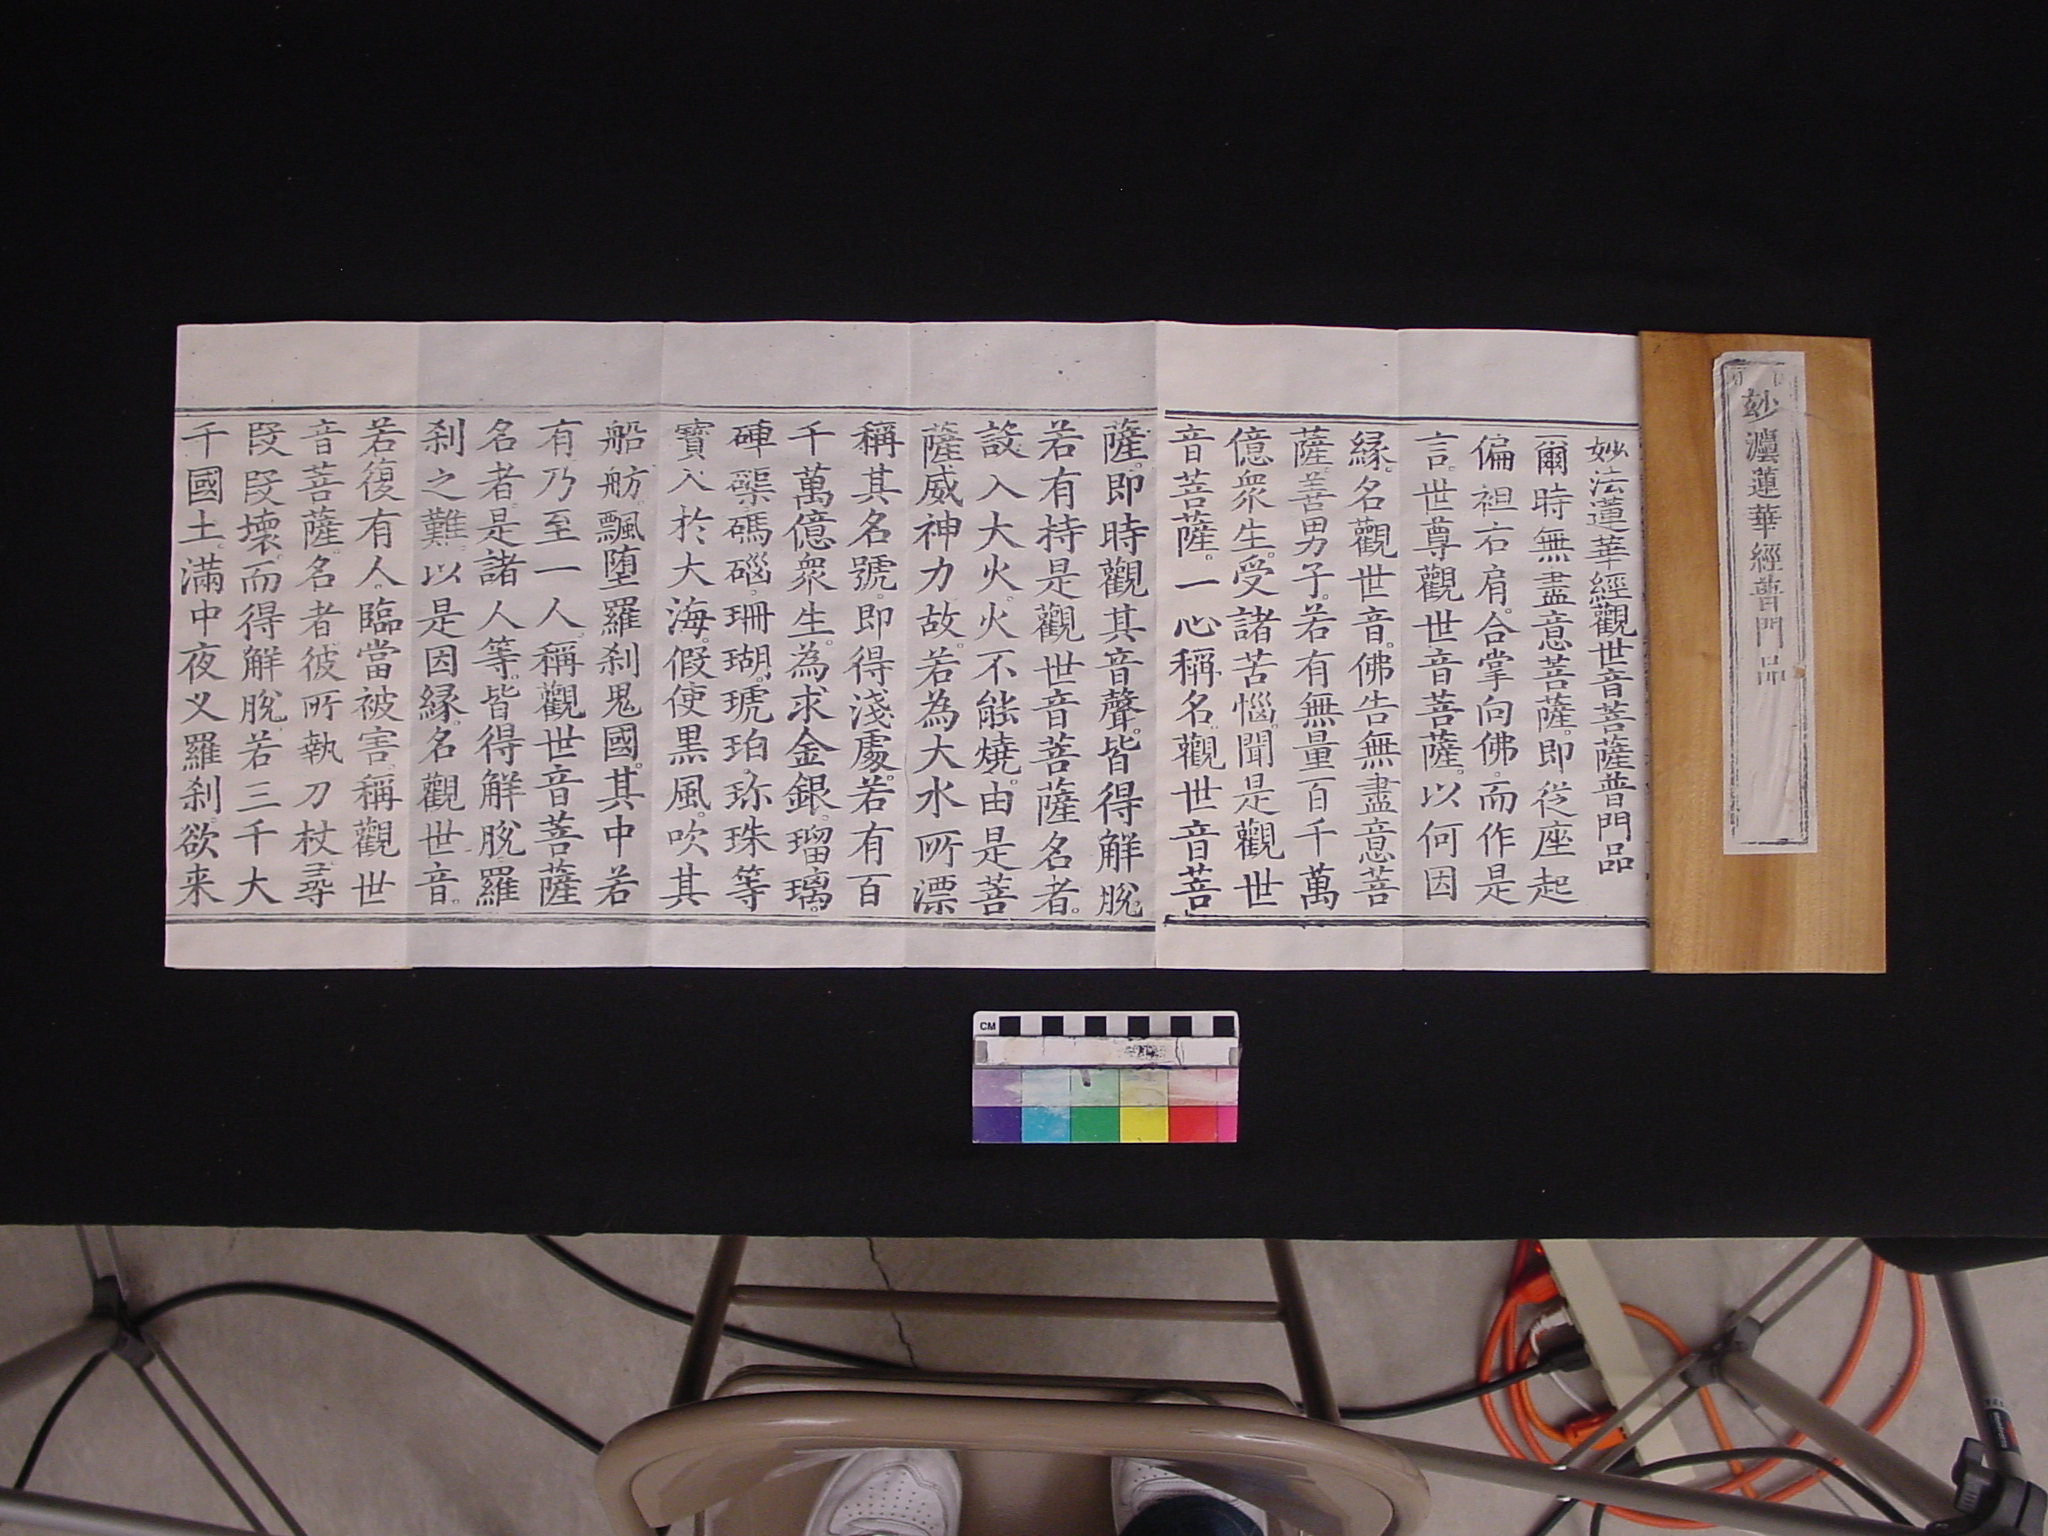 妙灋蓮華經普門品
妙法蓮華經觀世音菩薩普門品
爾時無盡意菩薩。即從座起
偏袒右肩。合掌向佛。而作是
言。世尊觀世音菩薩。以何因
緣。名觀世音。佛告無盡意菩
薩。善男子。若有無量百千萬
億眾生。受諸苦惱。聞是觀世
音菩薩。一心稱名。觀世音菩
薩。即時觀其音聲。皆得解脫。
若有持是觀世音菩薩名者。
設入大火。火不能燒。由是菩
薩威神力故。若為大水所漂
稱其名號。即得淺處。若有百
千萬億眾生。為求金銀。瑠璃。
硨磲。碼碯。珊瑚。琥珀。珎珠等
寶。入於大海。假使黑風。吹其
船舫。飄墮羅剎鬼國。其中若
有乃至一人。稱觀世音菩薩
名者。是諸人等。皆得解脫羅
剎之難。以是因緣。名觀世音。
若復有人。臨當被害。稱觀世
音菩薩。名者。彼所執刀杖尋
段段壞。而得解脫。若三千大
千國土。滿中夜叉羅剎。欲来
CM